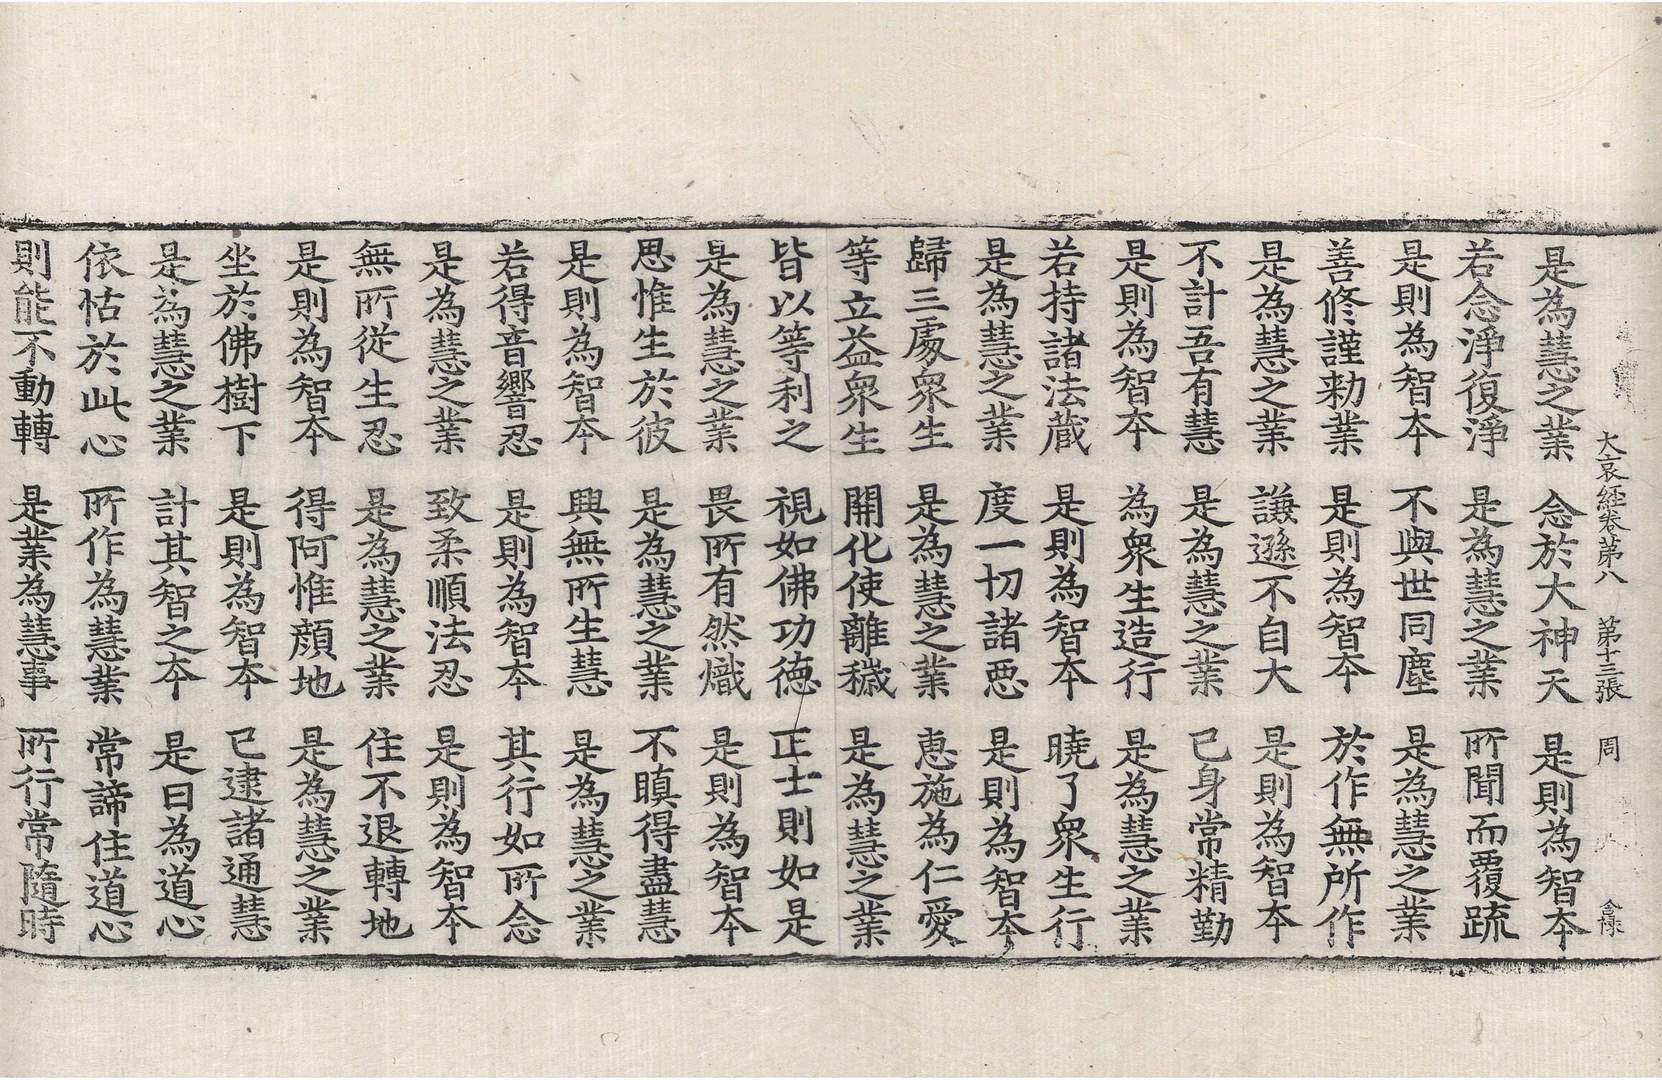 大哀經卷第八　第十三張　周
是為慧之業　念於大神天　是則為智本
若念淨復淨　是為慧之業　所聞而覆疏
是則為智本　不與世同塵　是為慧之業
善修謹勑業　是則為智本　於作無所作
是為慧之業　謙遜不自大　是則為智本
不計吾有慧　是為慧之業　已身常精勤
是則為智本　為衆生造行　是為慧之業
若持諸法藏　是則為智本　曉了衆生行
是為慧之業　度一切諸惡　是則為智本
歸三處衆生　是為慧之業　惠施為仁愛
等立益衆生　開化使離穢　是為慧之業
皆以等利之　視如佛功德　正士則如是
是為慧之業　畏所有然熾　是則為智本
思惟生於彼　是為慧之業　不瞋得盡慧
是則為智本　興無所生慧　是為慧之業
若得音響忍　是則為智本　其行如所念
是為慧之業　致柔順法忍　是則為智本
無所從生忍　是為慧之業　住不退轉地
是則為智本　得阿惟顔地　是為慧之業
坐於佛樹下　是則為智本　已逮諸通慧
是為慧之業　計其智之本　是曰為道心
依怙於此心　所作為慧業　常諦住道心
則能不動轉　是業為慧事　所行常隨時